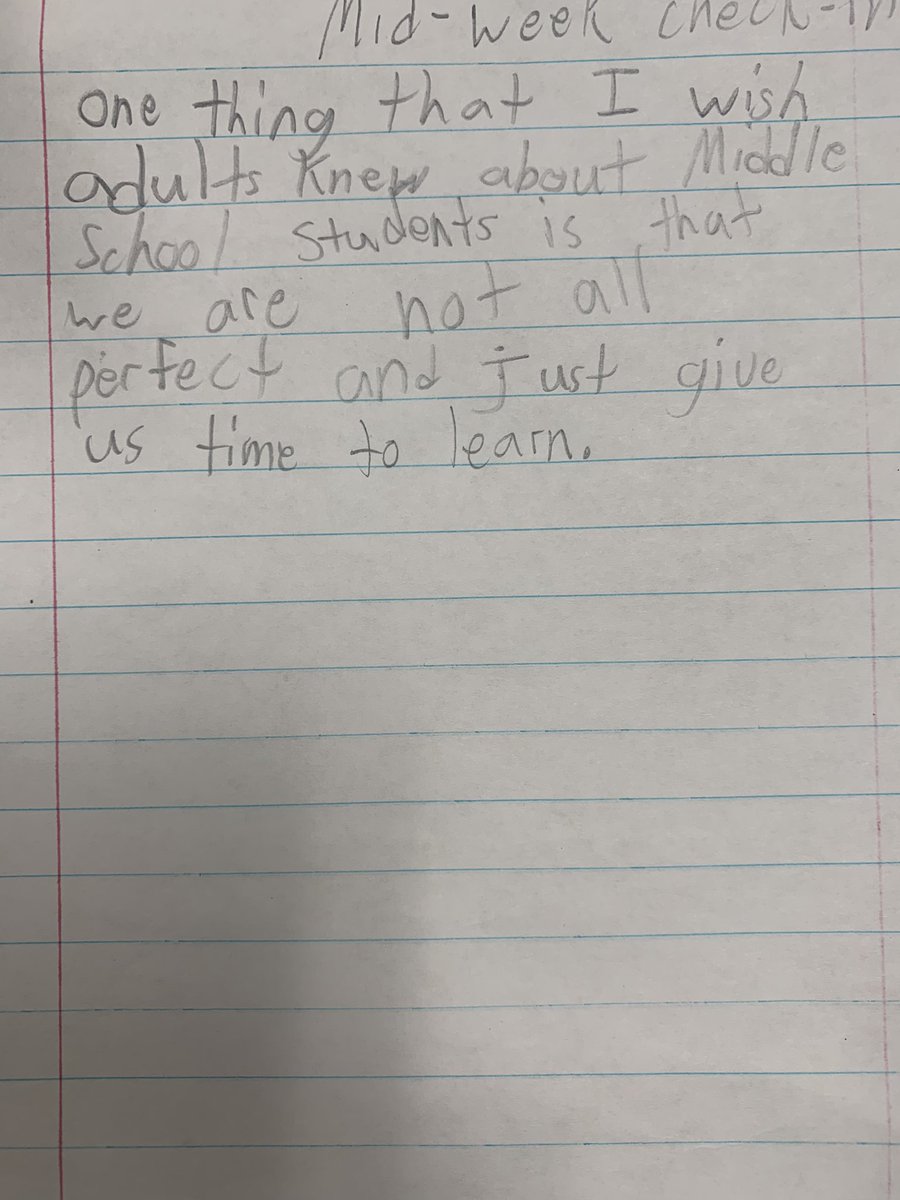 Mid-week check-in
One thing that I wish
adults knew about Middle
School students is that
we are not all
perfect and just give
us time to learn.